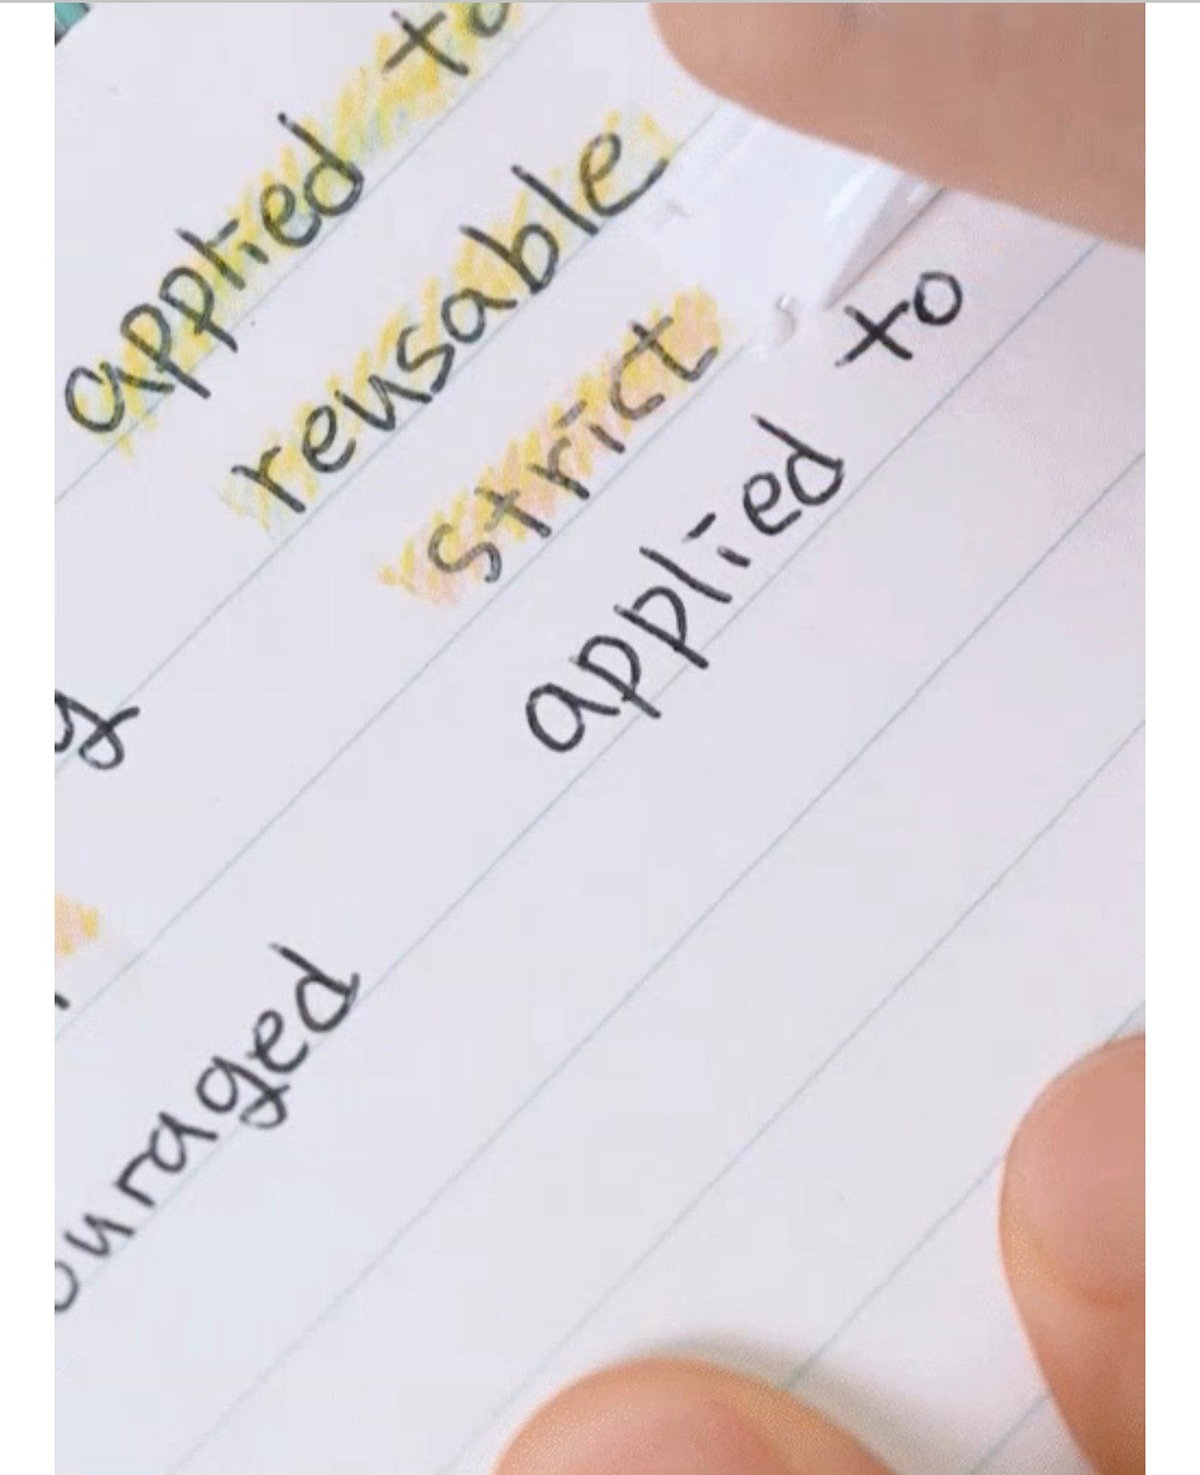 applied to
y reusable
strict
ouraged applied to